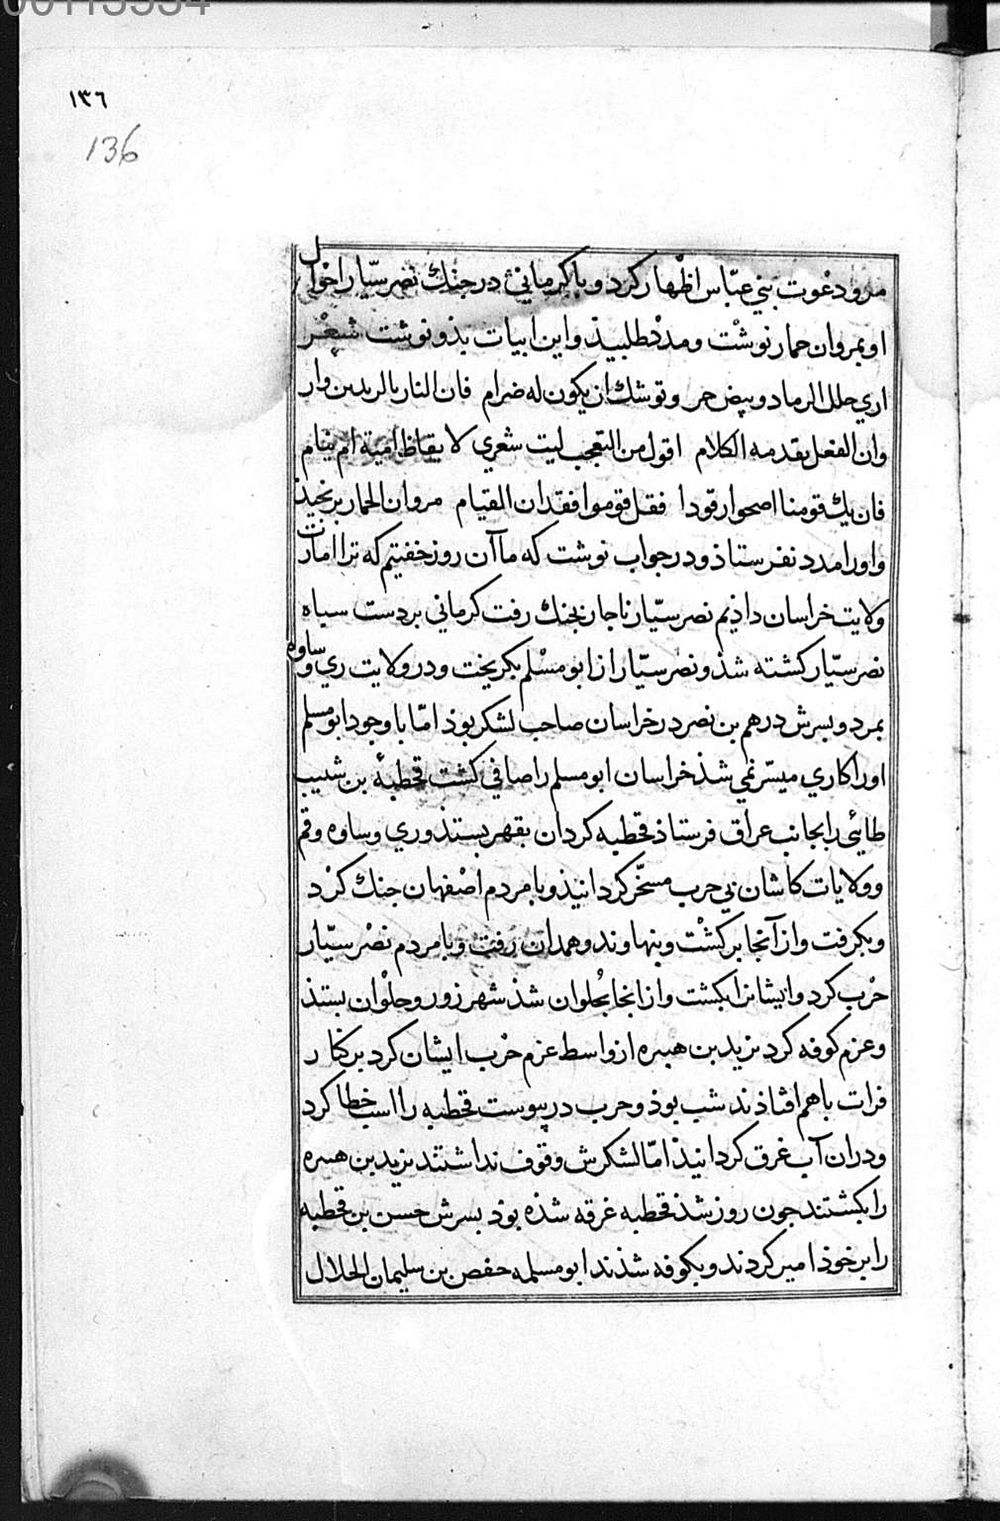 00113334
١٣٦
136
مرو دعوت بني عبّاس اظهار كرد و با كرماني در جنك نصر سيّار احوال
او بمروان حمار نوشت و مدد طلبيذ و اين ابيات بذو نوشت شعر
اري خلل الرماد وبيض جمر وتوشك ان يكون له ضرام فان النار بالريدين وار
وان الفعل يقدمه الكلام اقول من التعجب ليت شعري لا يقاظ امية ام ينام
فان يك قومنا اصحوا رقودا فقل قوموا فقد ان القيام مروان الحمار برنجيذ
و اورا مدد نفرستاذ و در جواب نوشت كه ما آن روز خفتيم كه ترا امارت
ولايت خراسان داذيم نصر سيّار ناجار بجنك رفت كرماني بر دست سباه
نصر سيّار كشته شذ و نصر سيّار از ابو مسلم بكريخت و در ولايت ري و ساوه
بمرد و بسرش درهم بن نصر در خراسان صاحب لشكر بوذ امّا با وجود ابو مسلم
اورا كاري ميسّر نمي شذ خراسان ابو مسلم را صافي كشت قحطبه بن شبيب
طائي را بجانب عراق فرستاذ قحطبه كردان بقهر بستذ و ري و ساوه و قم
و ولايات كاشان بي حرب مسخّر كردانيذ و با مردم اصفهان جنك كرد
و بكرفت و از آنجا بركشت و بنهاوند و همدان رفت و با مردم نصر سيّار
حرب كرد و ايشانرا بكشت و از انجا بحلوان شذ شهر زور و حلوان بستذ
و عزم كوفه كرد يزيد بن هبيره از واسط عزم حرب ايشان كرد بر كنار
فرات با هم افتاذند شب بوذ و حرب در پيوست قحطبه را اسب خطا كرد
و در ان آب غرق كردانيذ امّا لشكرش وقوف نداشتند يزيد بن هبيره
را بكشتند جون روز شذ قحطبه غرقه شذه بوذ بسرش حسن بن قحطبه
را بر خوذ امير كردند و بكوفه شذند ابو مسلمه حفص بن سليمان الخلال